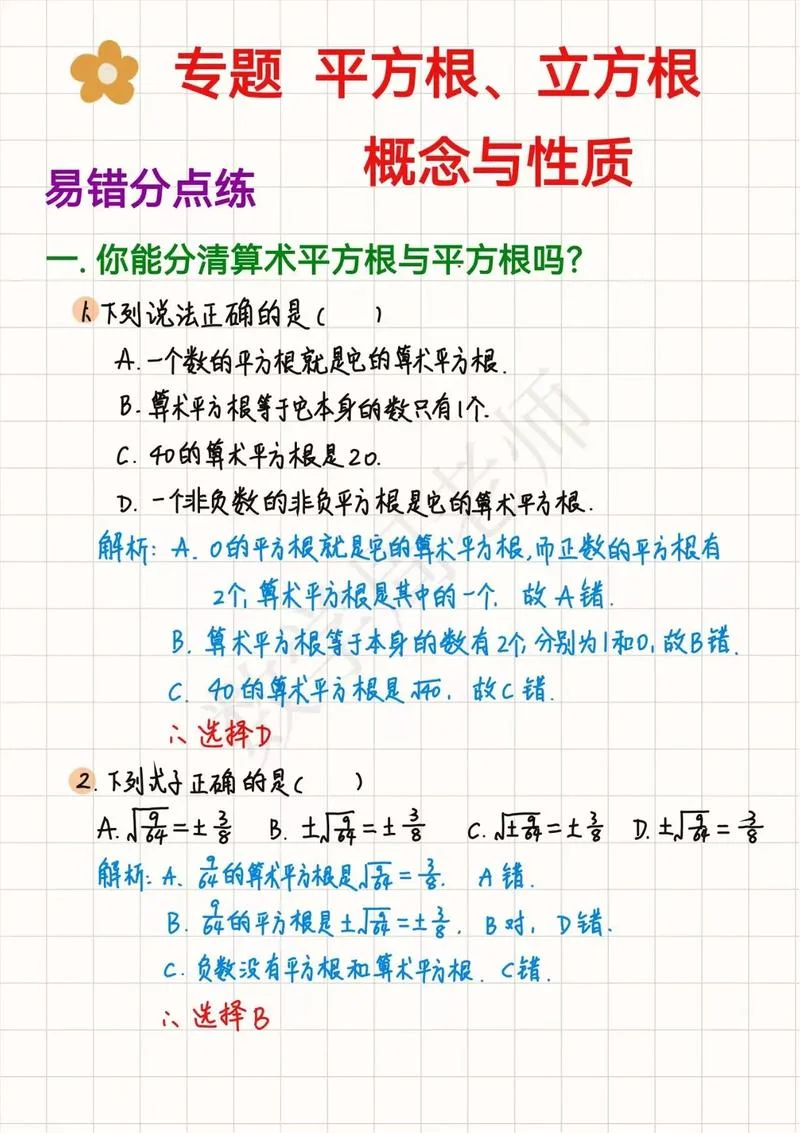 专题 平方根、立方根
概念与性质
易错分点练
一. 你能分清算术平方根与平方根吗?
1. 下列说法正确的是(  )
A. 一个数的平方根就是它的算术平方根.
B. 算术平方根等于它本身的数只有1个.
C. 40的算术平方根是20.
D. 一个非负数的非负平方根是它的算术平方根.
解析: A. 0的平方根就是它的算术平方根,而正数的平方根有
2个, 算术平方根是其中的一个. 故A错.
B. 算术平方根等于本身的数有2个,分别为1和0,故B错.
C. 40的算术平方根是√40, 故C错.
∴选择D
2. 下列式子正确的是(  )
A. √9/64=±3/8 B. ±√9/64=±3/8 C. √±9/64=±3/8 D. ±√9/64=3/8
解析: A. 9/64的算术平方根是√9/64=3/8. A错.
B. 9/64的平方根是±√9/64=±3/8. B对, D错.
C. 负数没有平方根和算术平方根. C错.
∴选择B
数学周老师